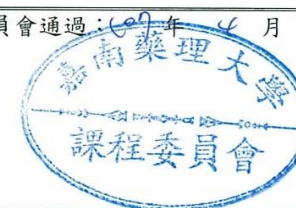 員會通過：107年 4 月
嘉南藥理大學
課程委員會